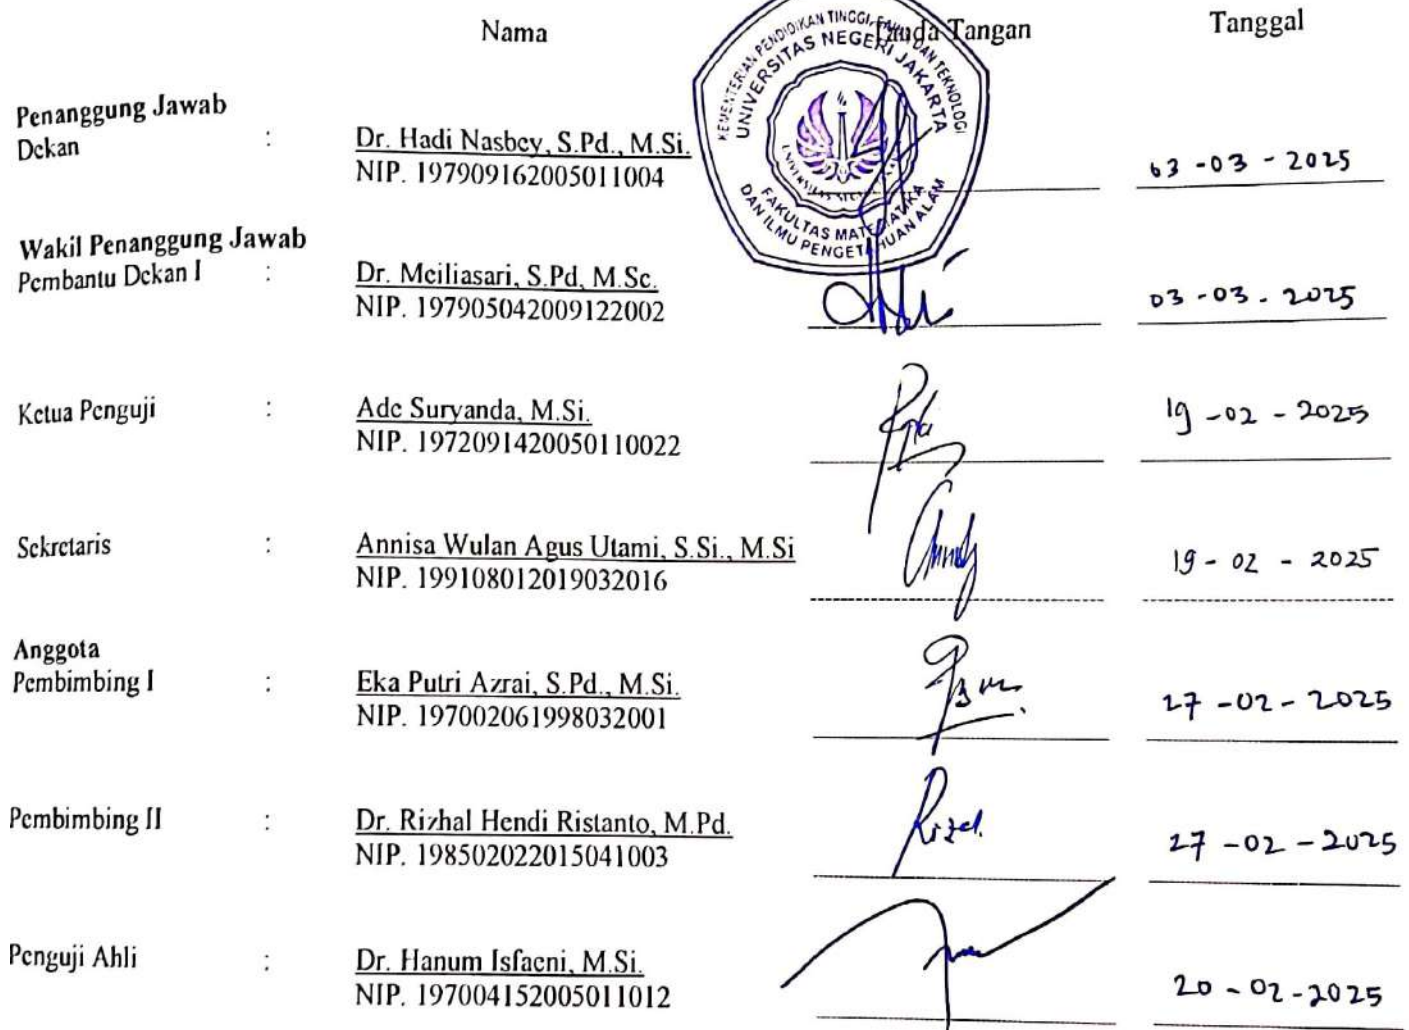 Nama Tanda Tangan Tanggal
KEMENTERIAN PENDIDIKAN TINGGI, SAINS, DAN TEKNOLOGI
UNIVERSITAS NEGERI JAKARTA
FAKULTAS MATEMATIKA
DAN ILMU PENGETAHUAN ALAM
Penanggung Jawab
Dekan : Dr. Hadi Nasbey, S.Pd., M.Si. 03 -03 - 2025
NIP. 197909162005011004
Wakil Penanggung Jawab
Pembantu Dekan I : Dr. Meiliasari, S.Pd, M.Sc. 03 -03 - 2025
NIP. 197905042009122002
Ketua Penguji : Ade Suryanda, M.Si. 19 -02 - 2025
NIP. 1972091420050110022
Sekretaris : Annisa Wulan Agus Utami, S.Si., M.Si 19 - 02 - 2025
NIP. 199108012019032016
Anggota
Pembimbing I : Eka Putri Azrai, S.Pd., M.Si. 27 -02 - 2025
NIP. 197002061998032001
Pembimbing II : Dr. Rizhal Hendi Ristanto, M.Pd. Rizal. 27 -02 - 2025
NIP. 198502022015041003
Penguji Ahli : Dr. Hanum Isfaeni, M.Si. 20 - 02 - 2025
NIP. 197004152005011012